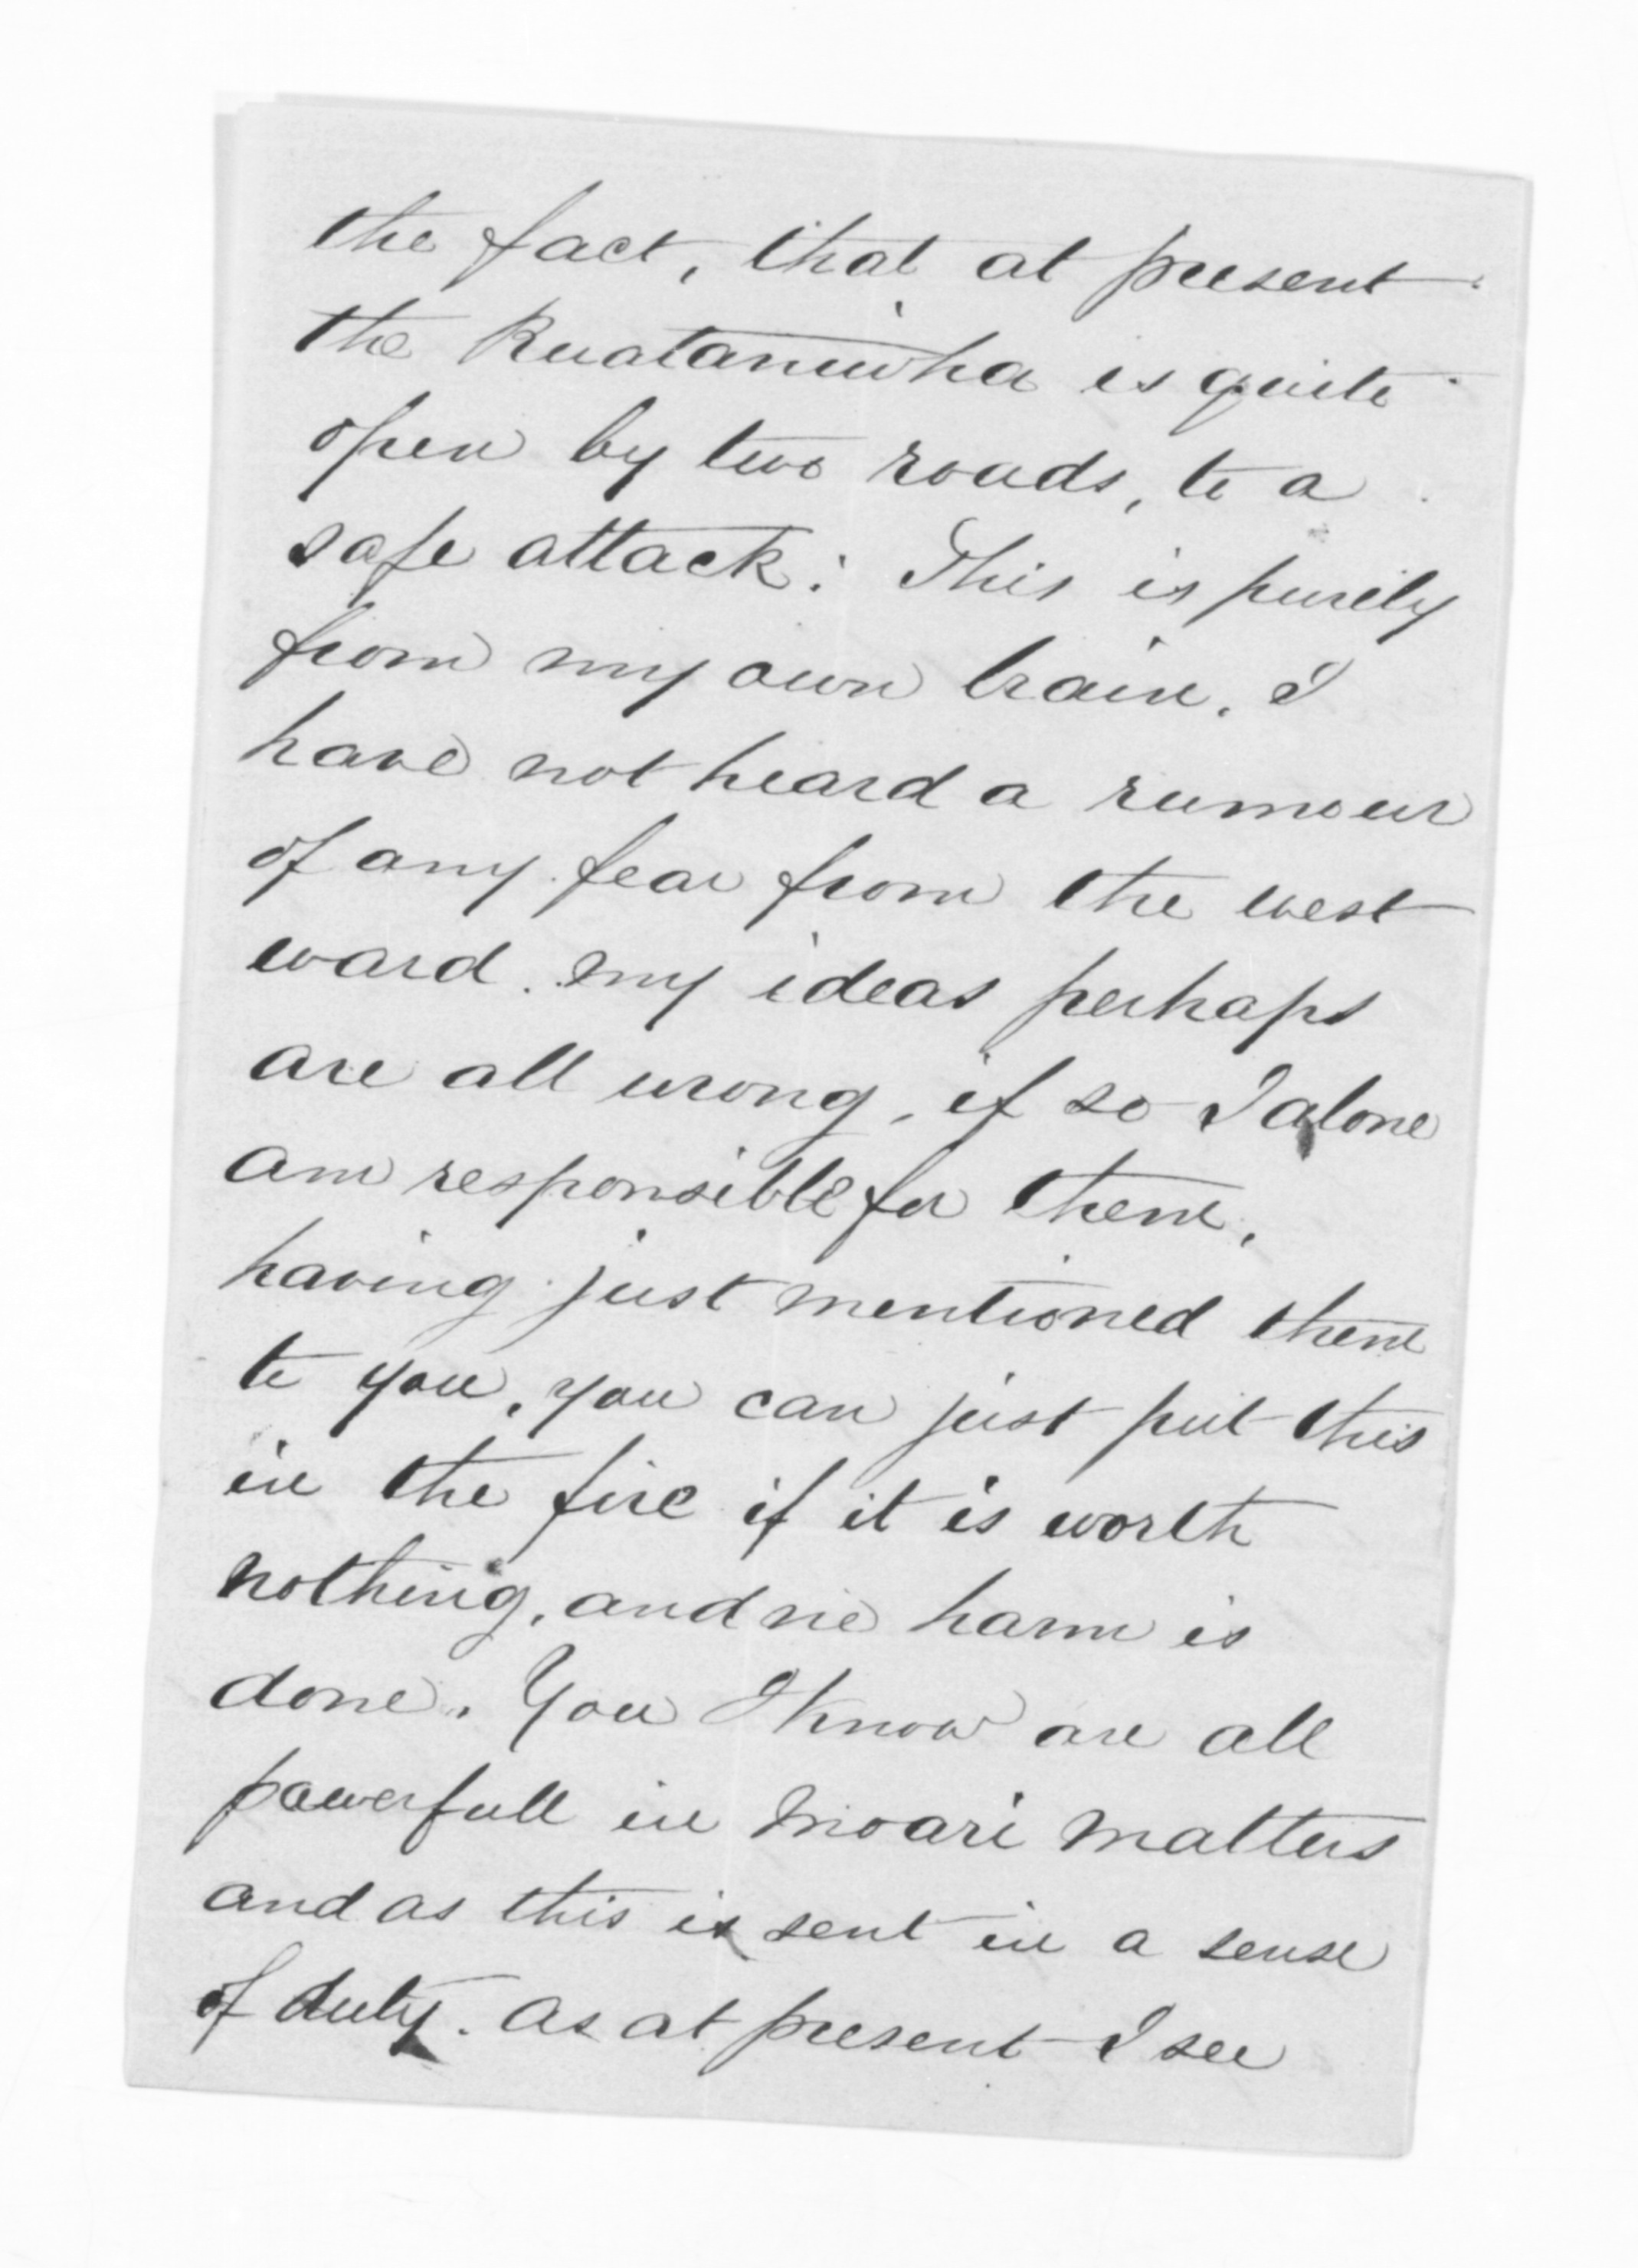 the fact, that at present
the Ruataniwha is quite
open by two roads, to a
safe attack: This is purely
from my own brain. I
have not heard a rumour
of any fear from the west
ward. my ideas perhaps
are all wrong, if so I alone
am responsible for them,
having just mentioned them
to you, you can just put this
in the fire if it is worth
nothing, and no harm is
done. You I know are all
powerfull in Moari matters
and as this is sent in a sense
of duty. As at present I see